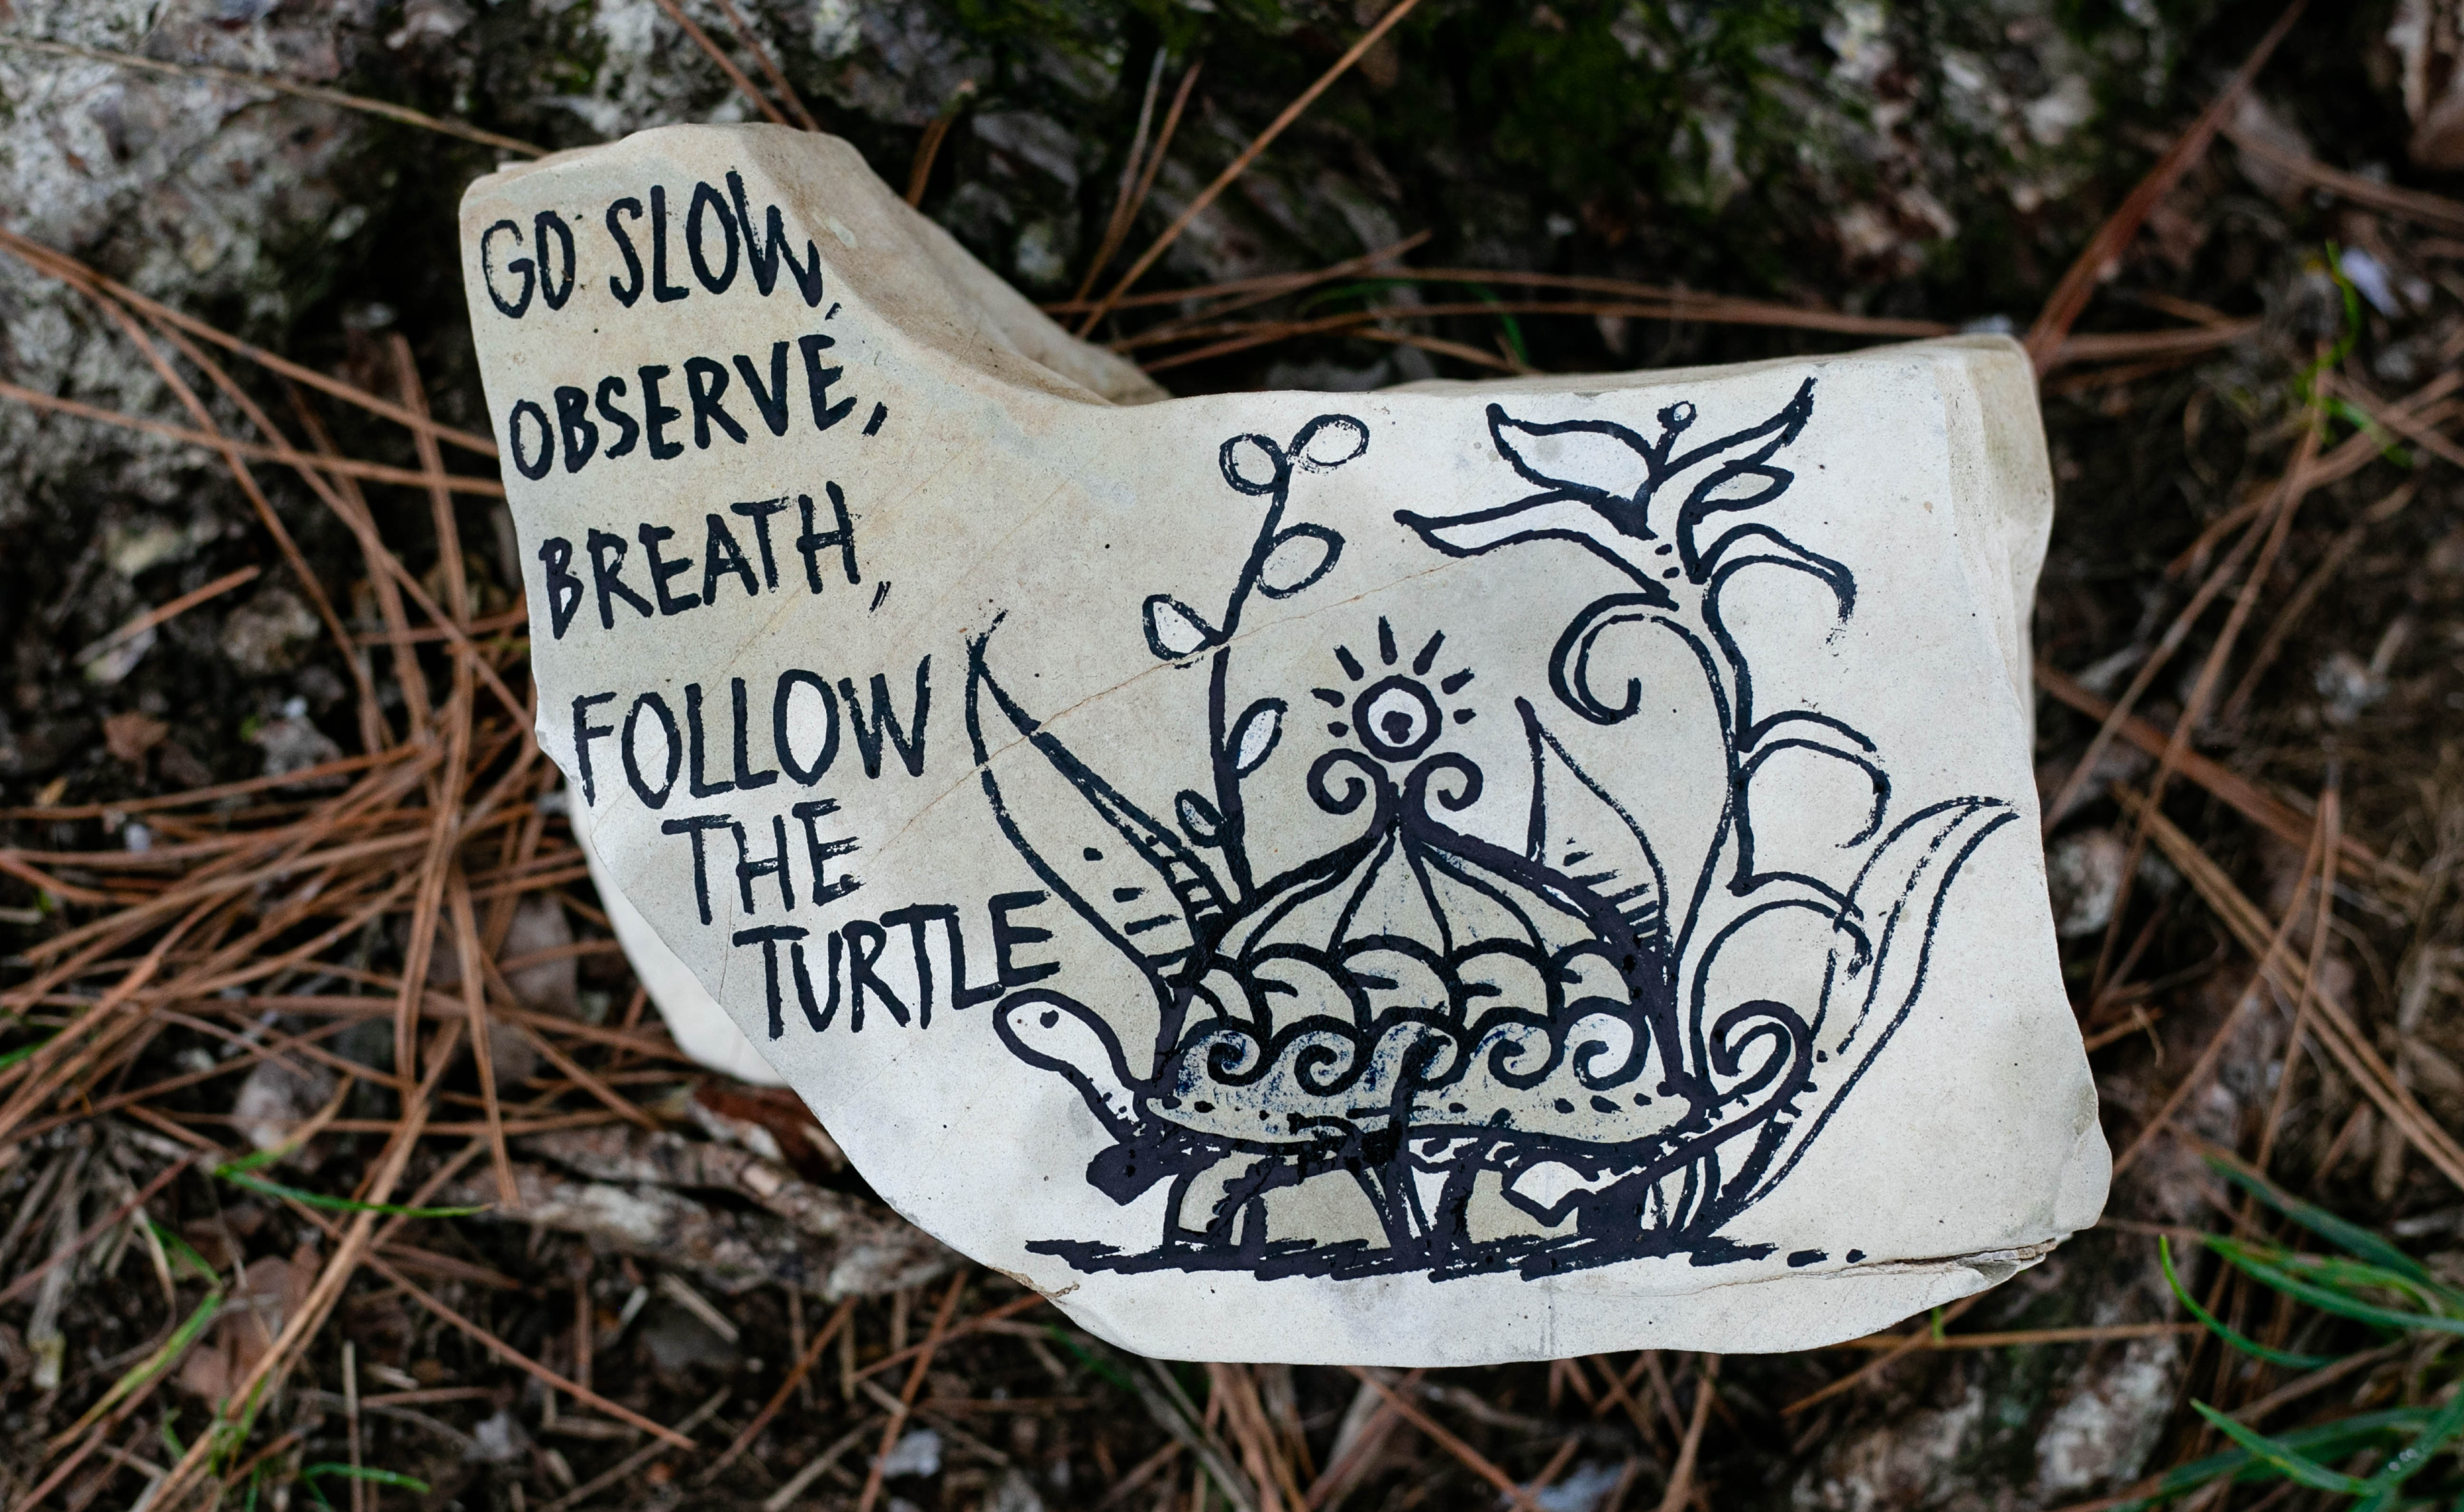 GO SLOW,
OBSERVE,
BREATH,
FOLLOW
THE
TURTLE